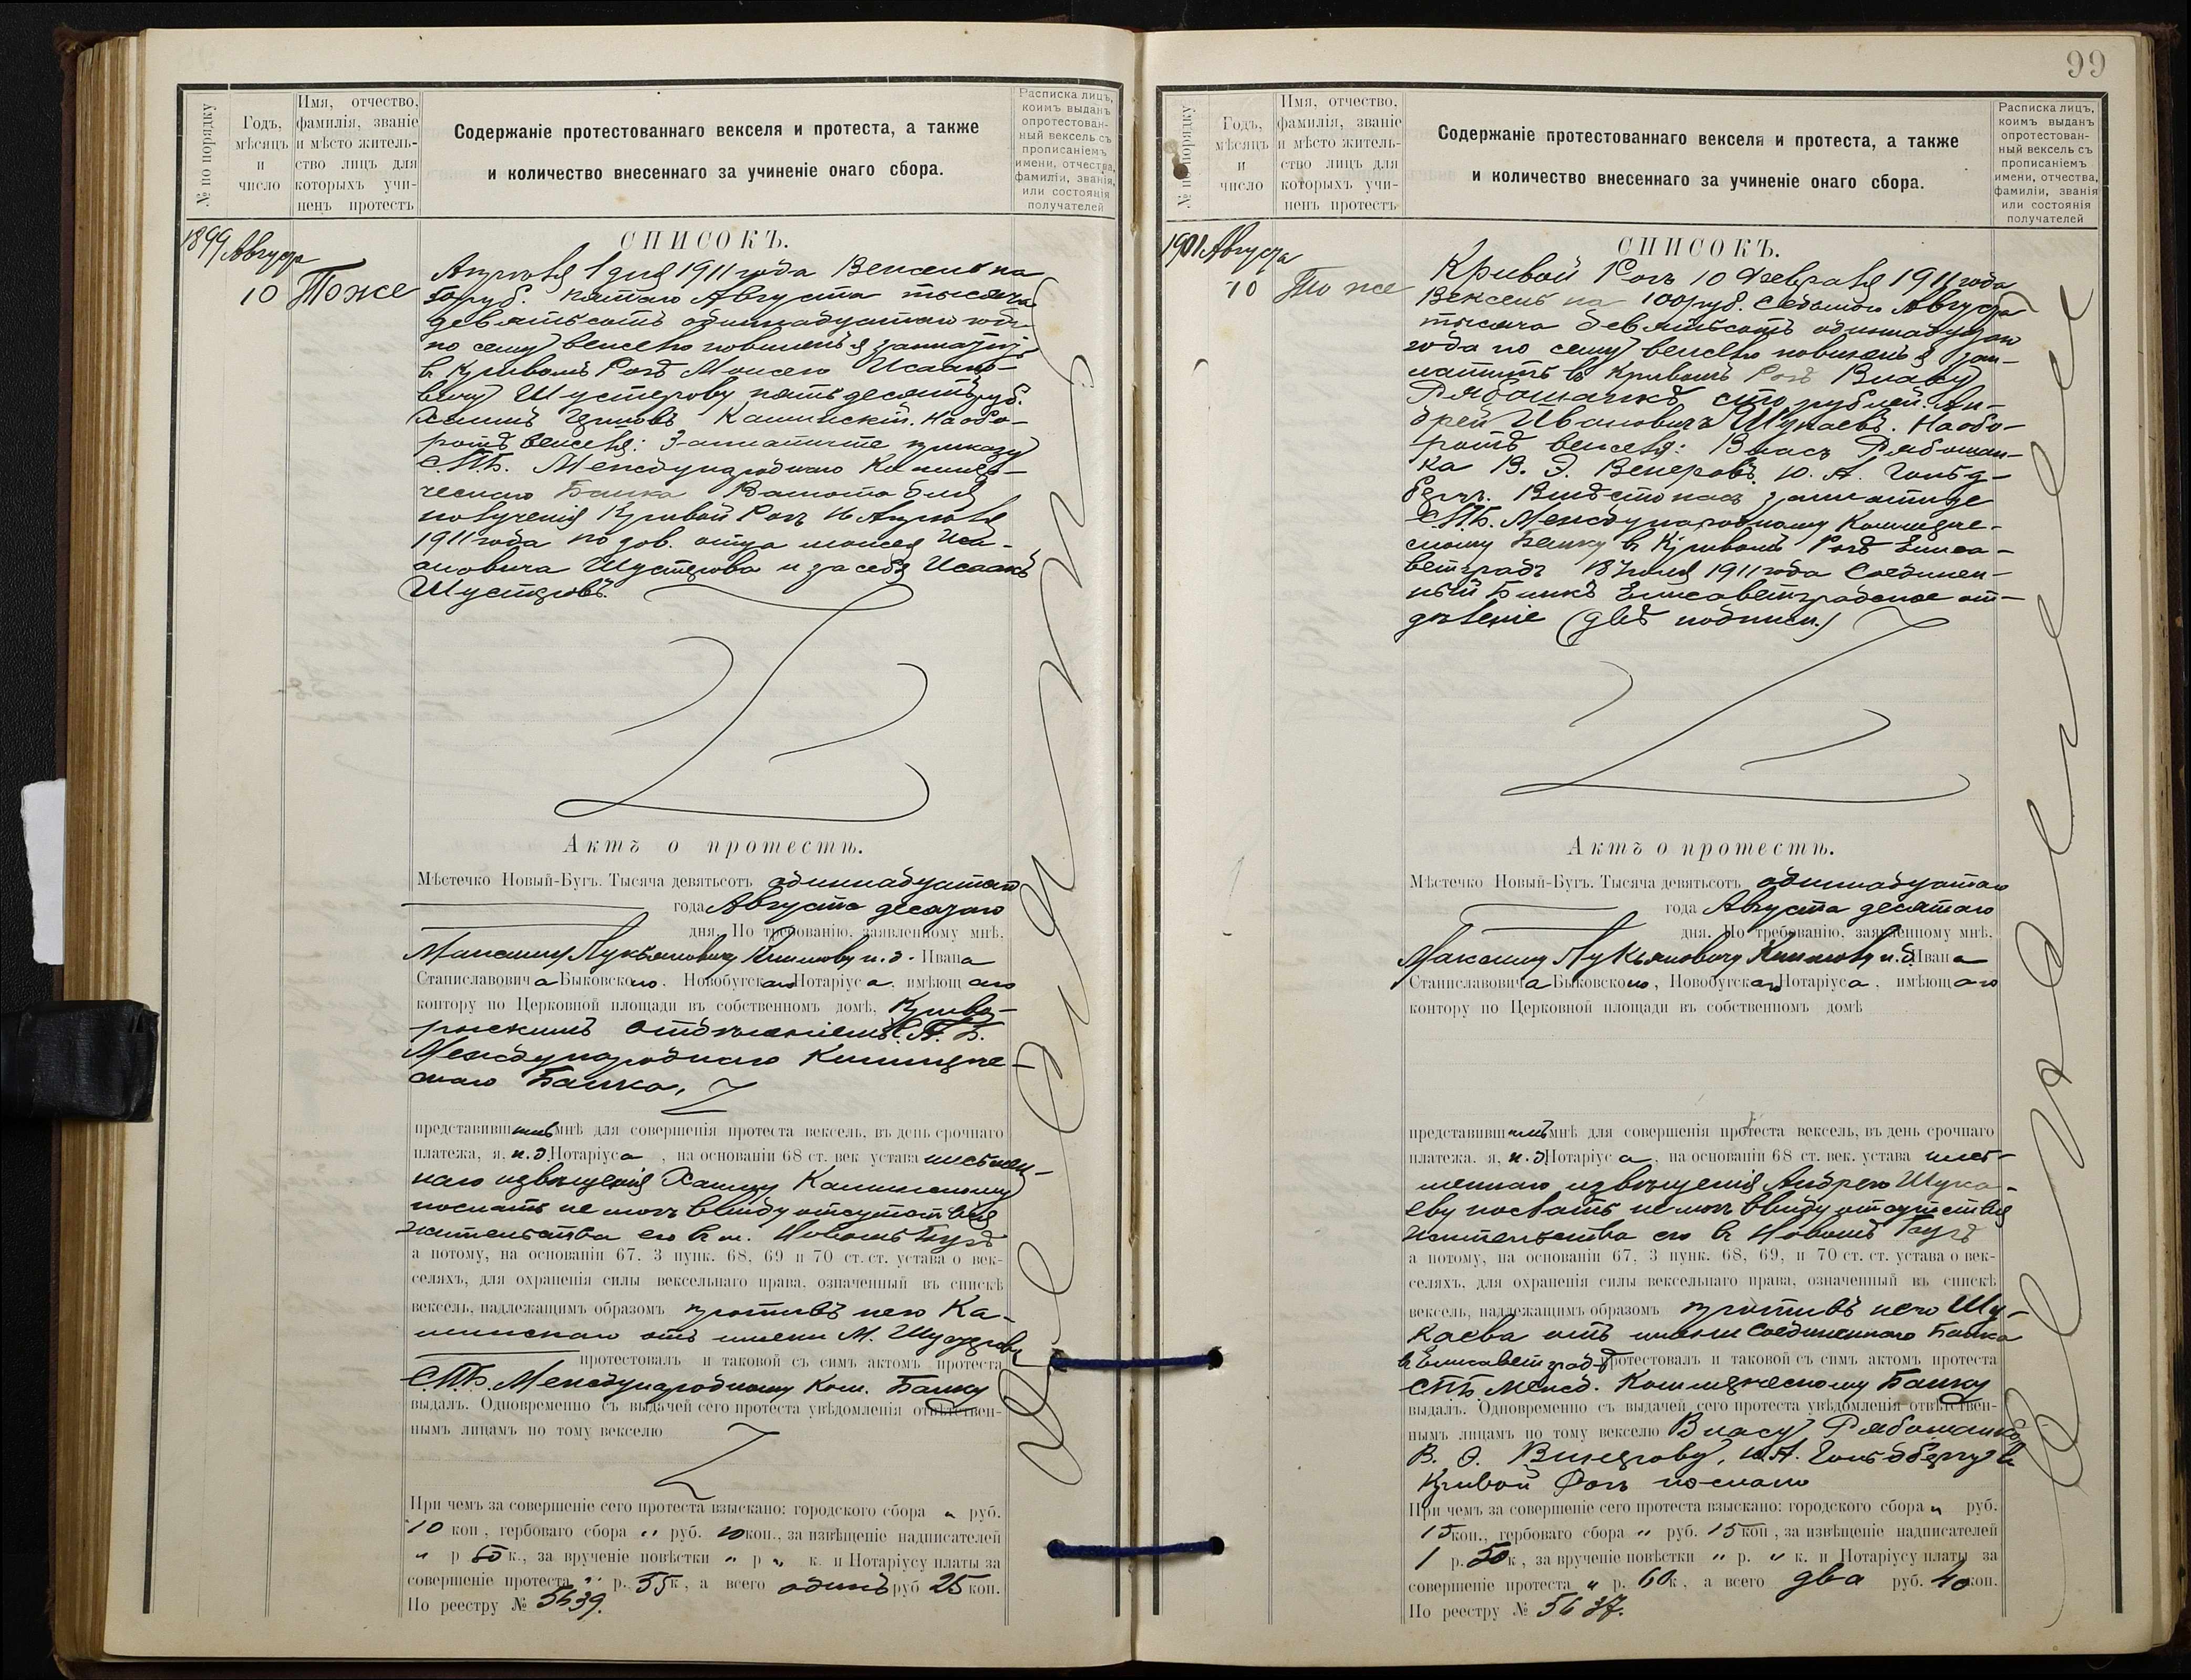 № по порядку
Годъ, мѣсяцъ и число
Имя, отчество, фамилія, званіе и мѣсто жительство лицъ для которыхъ учиненъ протестъ
Содержаніе протестованнаго векселя и протеста, а также
и количество внесеннаго за учиненіе онаго сбора.
Расписка лицъ, коимъ выданъ опротестованный вексель съ прописаніемъ имени, отчества, фамиліи, званія, или состоянія получателей
1899 Августа
10 То же
СПИСОКЪ.
Апрѣля 1 дня 1911 года Вексель на
50 руб. пятаго Августа тысяча
девятьсотъ одиннадцатаго года
по сему векселю повиненъ я заплатить
въ Кривомъ Рогѣ Моисею Исаако-
вичу Шустерову пятьдесятъ руб.
Каминскій. На обо-
ротѣ векселя: Заплатите приказу
С.П.Б. Международнаго Коммер-
ческаго Банка Валюта для
полученія Кривой Рогъ 16 Апрѣля
1911 года по дов. отца Моисея Иса-
аковича Шустерова и за себя Исаакъ
Шустеровъ.
Актъ о протестѣ.
Мѣстечко Новый-Бугъ. Тысяча девятьсотъ одиннадцатаго
года Августа десятаго
дня. По требованію, заявленному мнѣ,
Максиму Лукьяновичу Климову и. д. Ивана
Станиславовича Быковскаго, Новобугскаго Нотаріуса, имѣющаго
контору по Церковной площади въ собственномъ домѣ, Криво-
рожскимъ Отдѣленіемъ С.П.Б.
Международнаго Коммерче-
скаго Банка,
представившимъ мнѣ для совершенія протеста вексель, въ день срочнаго
платежа, я, и. д. Нотаріуса, на основаніи 68 ст. век устава письмен-
наго извѣщенія Каминскому
послать не могъ ввиду отсутствія
жительства его въ м. Новомъ Бугѣ
а потому, на основаніи 67, 3 пунк. 68, 69 и 70 ст. ст. устава о век-
селяхъ, для охраненія силы вексельнаго права, означенный въ спискѣ
вексель, надлежащимъ образомъ противъ него Ка-
минскаго отъ имени М. Шустерова
протестовалъ и таковой съ симъ актомъ протеста
С.П.Б. Международному Ком. Банку
выдалъ. Одновременно съ выдачей сего протеста увѣдомленія отвѣтствен-
нымъ лицамъ по тому векселю
При чемъ за совершеніе сего протеста взыскано: городского сбора " руб.
10 коп, гербоваго сбора " руб. 10 коп., за извѣщеніе надписателей
" р 50 к., за врученіе повѣстки " р " к. и Нотаріусу платы за
совершеніе протеста " р. 55 к, а всего одинъ руб 25 коп.
По реестру № 5639.
99
№ по порядку
Годъ, мѣсяцъ и число
Имя, отчество, фамилія, званіе и мѣсто жительство лицъ для которыхъ учиненъ протестъ
Содержаніе протестованнаго векселя и протеста, а также
и количество внесеннаго за учиненіе онаго сбора.
Расписка лицъ, коимъ выданъ опротестованный вексель съ прописаніемъ имени, отчества, фамиліи, званія или состоянія получателей
1901 Августа
10 То же
СПИСОКЪ.
Кривой Рогъ 10 Февраля 1911 года
Вексель на 100 руб. Седьмого Августа
тысяча девятьсотъ одиннадцатаго
года по сему векселю повиненъ я зап-
латить въ Кривомъ Рогѣ Власу
Рябошапкѣ сто рублей. Ан-
дрей Ивановичъ Шукаевъ. На обо-
ротѣ векселя: Власъ Рябошап-
ка В. Э. Венеровъ. Ю. А. Гольд-
бергъ. Вмѣсто насъ заплатите
С.П.Б. Международному Коммерче-
скому Банку въ Кривомъ Рогѣ Елиса-
ветградъ 18 Іюля 1911 года Соединен-
ный Банкъ Елисаветградское от-
дѣленіе (двѣ подписи.)
Актъ о протестѣ.
Мѣстечко Новый-Бугъ. Тысяча девятьсотъ одиннадцатаго
года Августа десятаго
дня. По требованію, заявленному мнѣ,
Максиму Лукьяновичу Климову и. д. Ивана
Станиславовича Быковскаго, Новобугскаго Нотаріуса, имѣющаго
контору по Церковной площади въ собственномъ домѣ
представившимъ мнѣ для совершенія протеста вексель, въ день срочнаго
платежа. я, и. д. Нотаріуса, на основаніи 68 ст. век. устава пись-
меннаго извѣщенія Андрею Шука-
еву послать не могъ ввиду отсутствія
жительства его въ Новомъ Бугѣ
а потому, на основаніи 67, 3 пунк. 68, 69, и 70 ст. ст. устава о век-
селяхъ, для охраненія силы вексельнаго права, означенный въ спискѣ
вексель, надлежащимъ образомъ противъ него Шу-
каева отъ имени Соединеннаго Банка
въ Елисаветградѣ протестовалъ и таковой съ симъ актомъ протеста
СПБ. Межд. Коммерческому Банку
выдалъ. Одновременно съ выдачей сего протеста увѣдомленія отвѣтствен-
нымъ лицамъ по тому векселю Власу Рябошапкѣ,
В. Э. Венерову, Ю.А. Гольдбергу въ
Кривой Рогъ послано
При чемъ за совершеніе сего протеста взыскано: городского сбора " руб.
15 коп., гербоваго сбора " руб. 15 коп, за извѣщеніе надписателей
1 р. 50 к, за врученіе повѣстки " р. " к. и Нотаріусу платы за
совершеніе протеста " р. 60 к, а всего два руб. 40 коп.
По реестру № 5637.